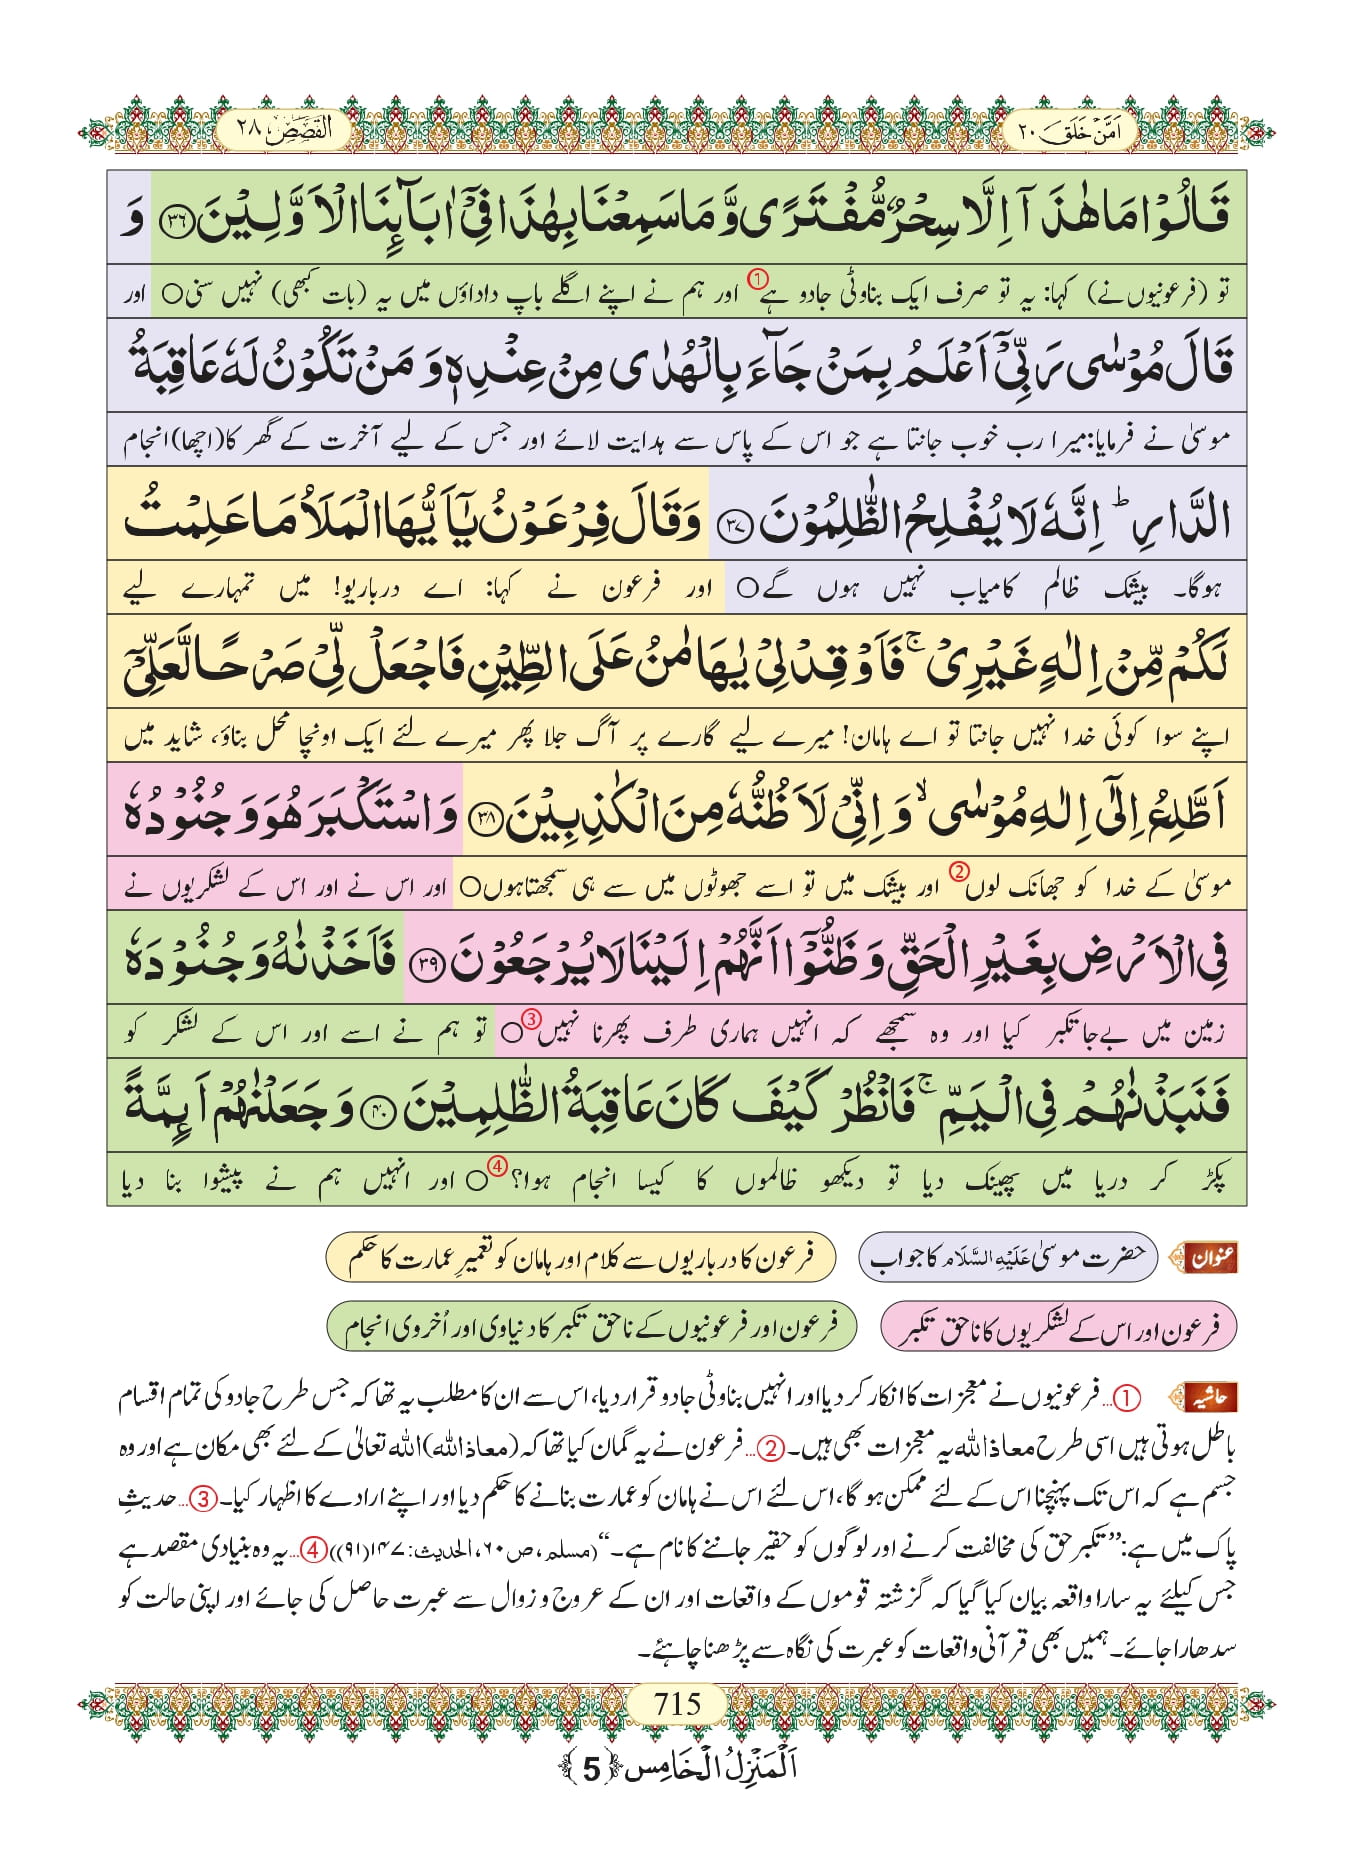 اَمَّنْ خَلَقَ ۲۰
الْقَصَص ۲۸
قَالُوْا مَا هٰذَاۤ اِلَّا سِحْرٌ مُّفْتَرًى وَّ مَا سَمِعْنَا بِهٰذَا فِیْۤ اٰبَآىٕنَا الْاَوَّلِیْنَ ﴿۳۶﴾ وَ
تو (فرعونیوں نے) کہا: یہ تو صرف ایک بناوٹی جادو ہے① اور ہم نے اپنے اگلے باپ داداؤں میں یہ (بات کبھی) نہیں سنی○ اور
قَالَ مُوْسٰى رَبِّیْۤ اَعْلَمُ بِمَنْ جَآءَ بِالْهُدٰى مِنْ عِنْدِهٖ وَ مَنْ تَكُوْنُ لَهٗ عَاقِبَةُ
موسیٰ نے فرمایا: میرا رب خوب جانتا ہے جو اس کے پاس سے ہدایت لائے اور جس کے لیے آخرت کے گھر کا (اچھا) انجام
الدَّارِؕ اِنَّهٗ لَا یُفْلِحُ الظّٰلِمُوْنَ ﴿۳۷﴾ وَ قَالَ فِرْعَوْنُ یٰۤاَیُّهَا الْمَلَاُ مَا عَلِمْتُ
ہوگا۔ بیشک ظالم کامیاب نہیں ہوں گے○ اور فرعون نے کہا: اے درباریو! میں تمہارے لیے
لَكُمْ مِّنْ اِلٰهٍ غَیْرِیْۚ فَاَوْقِدْ لِیْ یٰهَامٰنُ عَلَى الطِّیْنِ فَاجْعَلْ لِّیْ صَرْحًا لَّعَلِّیْۤ
اپنے سوا کوئی خدا نہیں جانتا تو اے ہامان! میرے لیے گارے پر آگ جلا پھر میرے لئے ایک اونچا محل بناؤ، شاید میں
اَطَّلِعُ اِلٰۤى اِلٰهِ مُوْسٰىۙ وَ اِنِّیْ لَاَظُنُّهٗ مِنَ الْكٰذِبِیْنَ ﴿۳۸﴾ وَ اسْتَكْبَرَ هُوَ وَ جُنُوْدُهٗ
موسیٰ کے خدا کو جھانک لوں② اور بیشک میں تو اسے جھوٹوں میں سے ہی سمجھتا ہوں○ اور اس نے اور اس کے لشکریوں نے
فِی الْاَرْضِ بِغَیْرِ الْحَقِّ وَ ظَنُّوْۤا اَنَّهُمْ اِلَیْنَا لَا یُرْجَعُوْنَ ﴿۳۹﴾ فَاَخَذْنٰهُ وَ جُنُوْدَهٗ
زمین میں بے جا تکبر کیا اور وہ سمجھے کہ انہیں ہماری طرف پھرنا نہیں③○ تو ہم نے اسے اور اس کے لشکر کو
فَنَبَذْنٰهُمْ فِی الْیَمِّۚ فَانْظُرْ كَیْفَ كَانَ عَاقِبَةُ الظّٰلِمِیْنَ ﴿۴۰﴾ وَ جَعَلْنٰهُمْ اَىٕمَّةً
پکڑ کر دریا میں پھینک دیا تو دیکھو ظالموں کا کیسا انجام ہوا؟④○ اور انہیں ہم نے پیشوا بنا دیا
عنوان حضرت موسیٰ عَلَیْہِ السَّلَام کا جواب فرعون کا درباریوں سے کلام اور ہامان کو تعمیرِ عمارت کا حکم
فرعون اور اس کے لشکریوں کا ناحق تکبر فرعون اور فرعونیوں کے ناحق تکبر کا دنیاوی اور اُخروی انجام
حاشیہ ①… فرعونیوں نے معجزات کا انکار کر دیا اور انہیں بناوٹی جادو قرار دیا، اس سے ان کا مطلب یہ تھا کہ جس طرح جادو کی تمام اقسام
باطل ہوتی ہیں اسی طرح معاذ اللہ یہ معجزات بھی ہیں۔ ②… فرعون نے یہ گمان کیا تھا کہ (معاذ اللہ) اللہ تعالیٰ کے لئے بھی مکان ہے اور وہ
جسم ہے کہ اس تک پہنچنا اس کے لئے ممکن ہو گا، اس لئے اس نے ہامان کو عمارت بنانے کا حکم دیا اور اپنے ارادے کا اظہار کیا۔ ③… حدیثِ
پاک میں ہے: ”تکبر حق کی مخالفت کرنے اور لوگوں کو حقیر جاننے کا نام ہے۔“ (مسلم، ص ۶۰، الحدیث: ۱۴۷(۹۱)) ④… یہ وہ بنیادی مقصد ہے
جس کیلئے یہ سارا واقعہ بیان کیا گیا کہ گزشتہ قوموں کے واقعات اور ان کے عروج و زوال سے عبرت حاصل کی جائے اور اپنی حالت کو
سدھارا جائے۔ ہمیں بھی قرآنی واقعات کو عبرت کی نگاہ سے پڑھنا چاہئے۔
715
اَلْمَنْزِلُ الْخَامِس ﴿5﴾